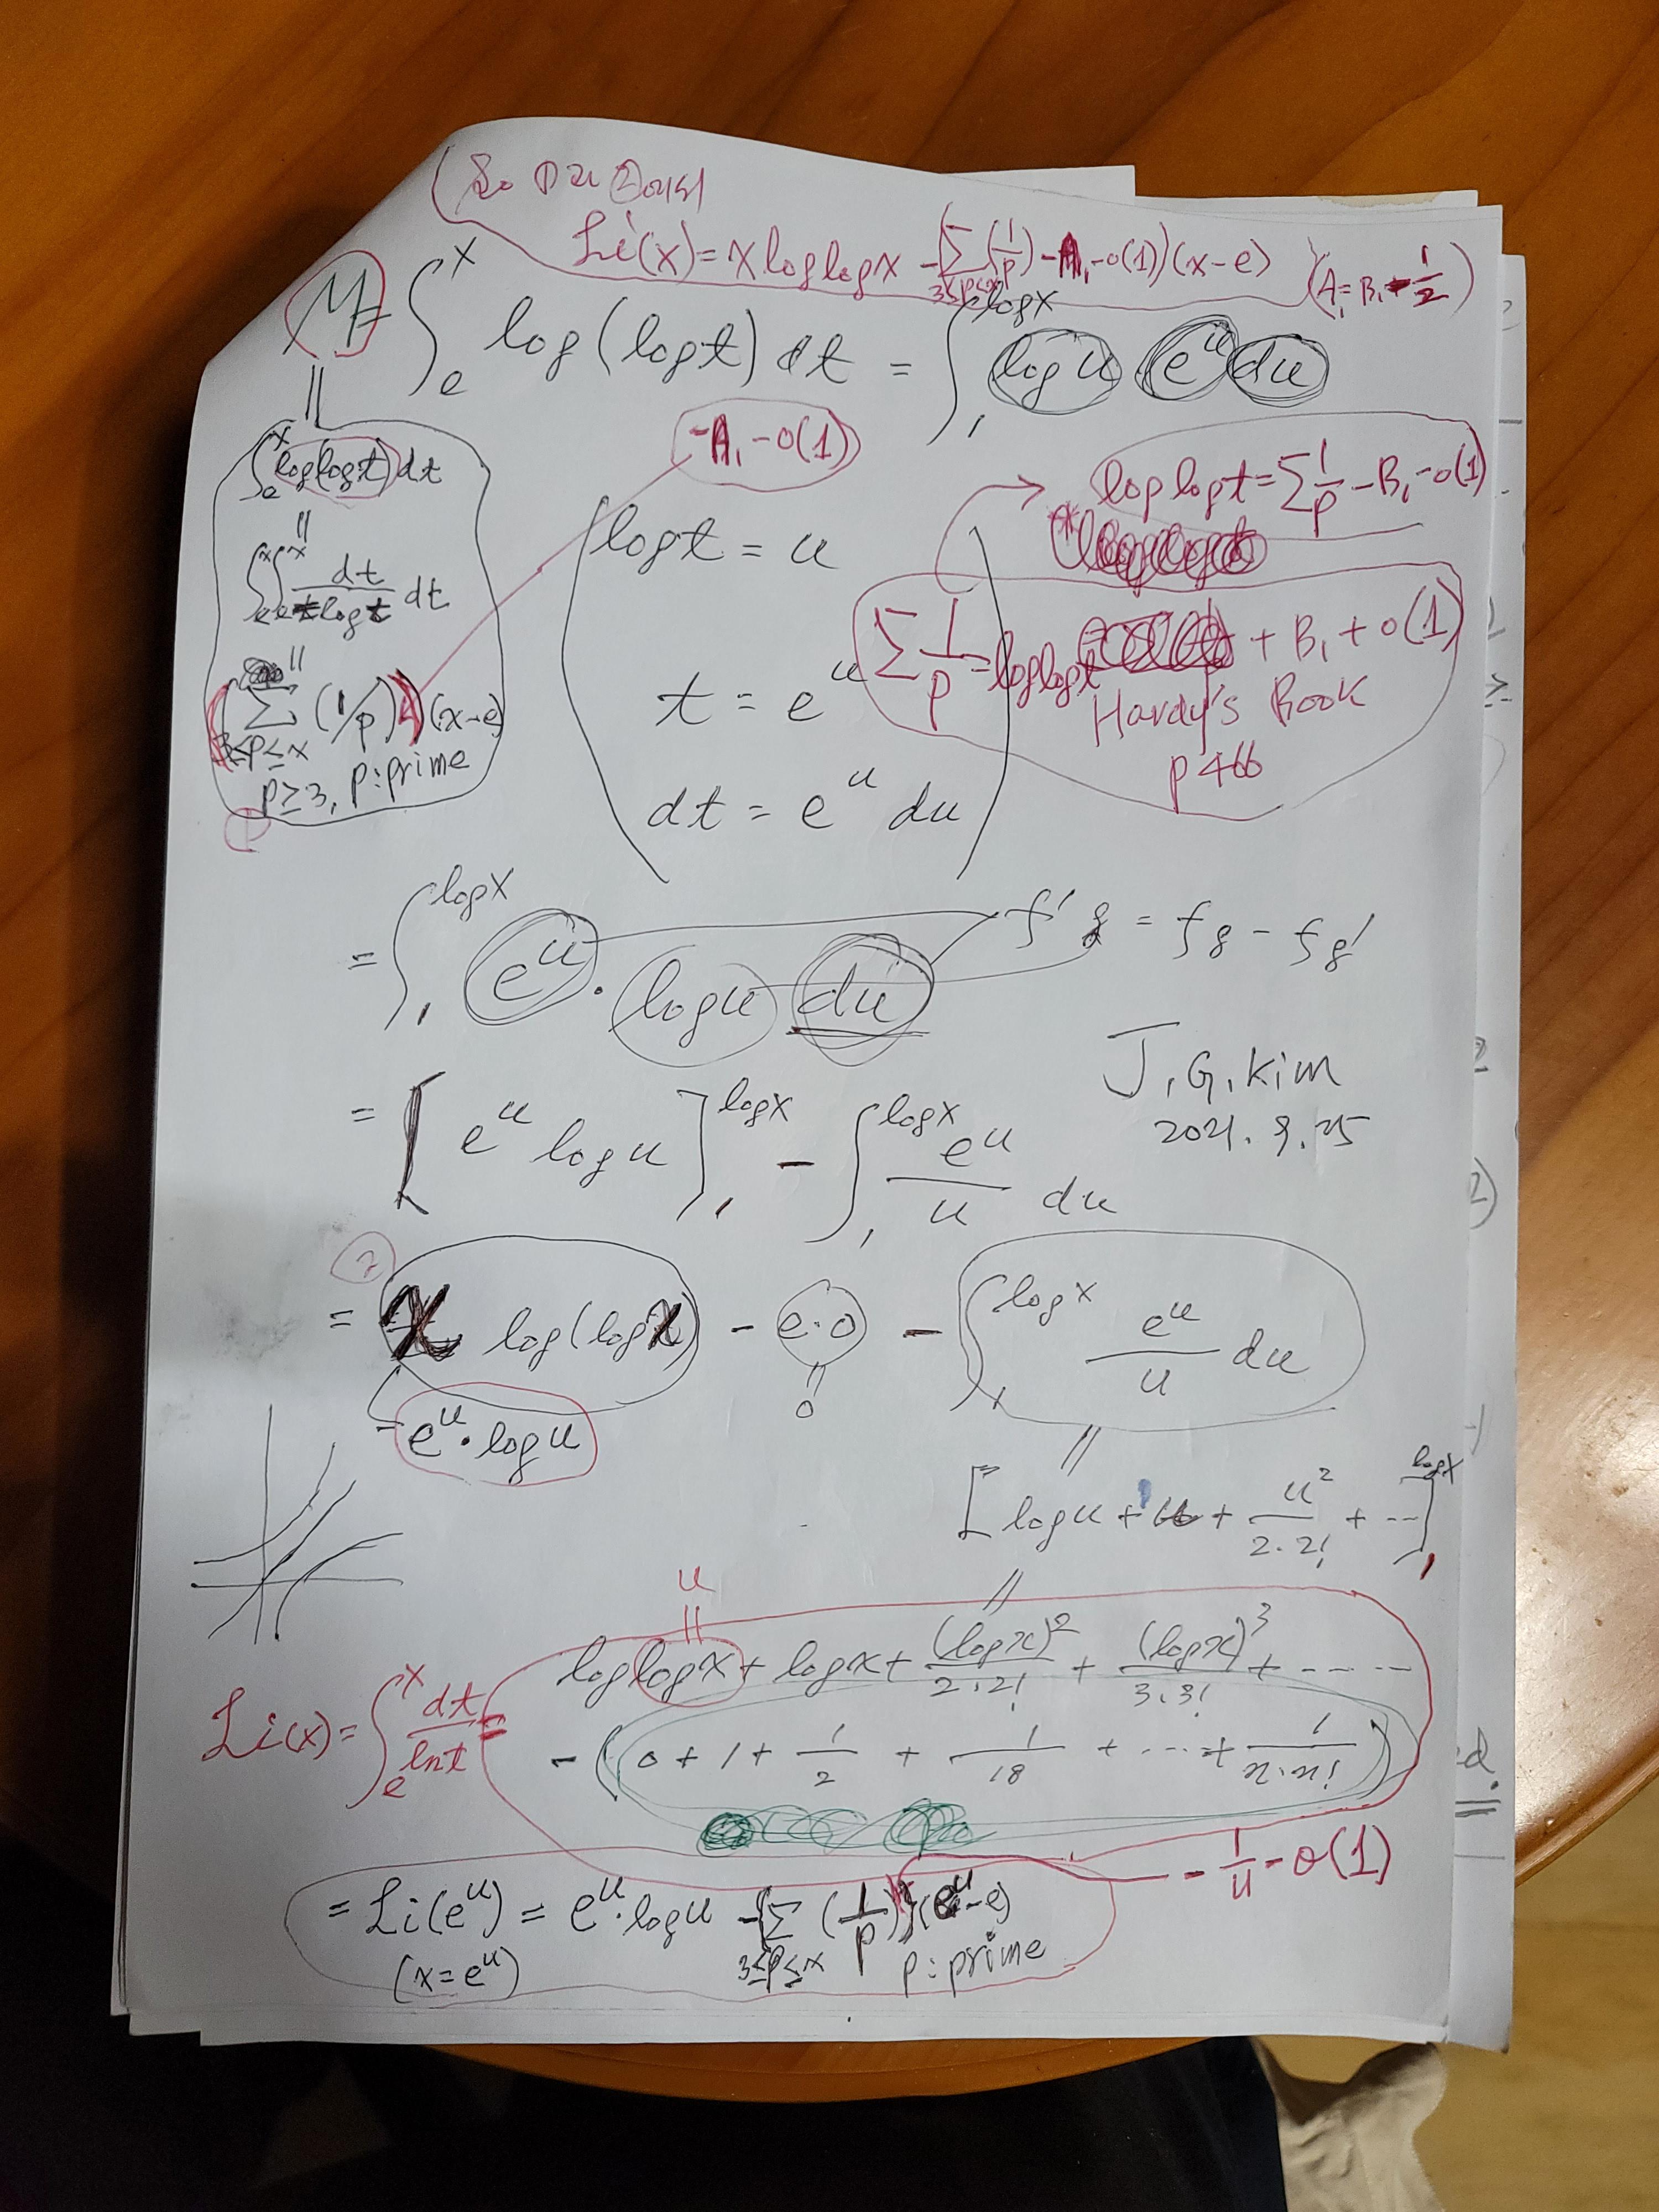 So ①과 ②에서
Li(x) = x log log x - (∑_{3≤p≤x} (1/p) - A₁ - o(1))(x-e) (A₁ = B₁ - 1/2)
M = ∫_e^x log(log t) dt = ∫_1^{log x} log u e^u du
||
∫_e^x log(log t) dt
||
∫_e^x ∫_e^x dt/(t log t) dt
||
(∑_{3≤p≤x} (1/p) )(x-e)
p≥3, p:prime
①
-A₁ - o(1)
log t = u
t = e^u
dt = e^u du
log log t = ∑ 1/p - B₁ - o(1)
∑ 1/p = log log t + B₁ + o(1)
Hardy's Book
p 466
= ∫_1^{log x} e^u · log u du
f' g = f g - f g'
= [e^u log u]_1^{log x} - ∫_1^{log x} e^u/u du
J.G.Kim
2021.9.25
②
= x log(log x) - e·0 - ∫_1^{log x} e^u/u du
|| 0
e^u · log u
||
[log u + u + u²/(2·2!) + ---]_1^{log x}
||
u
||
log log x + log x + (log x)²/(2·2!) + (log x)³/(3·3!) + -----
Li(x) = ∫_e^x dt/ln t =
- (0 + 1 + 1/2 + 1/18 + ---- + 1/(n·n!))
- 1/u - o(1)
= Li(e^u) = e^u · log u - (∑_{3≤p≤x} (1/p) )(e^u - e)
(x = e^u) p:prime